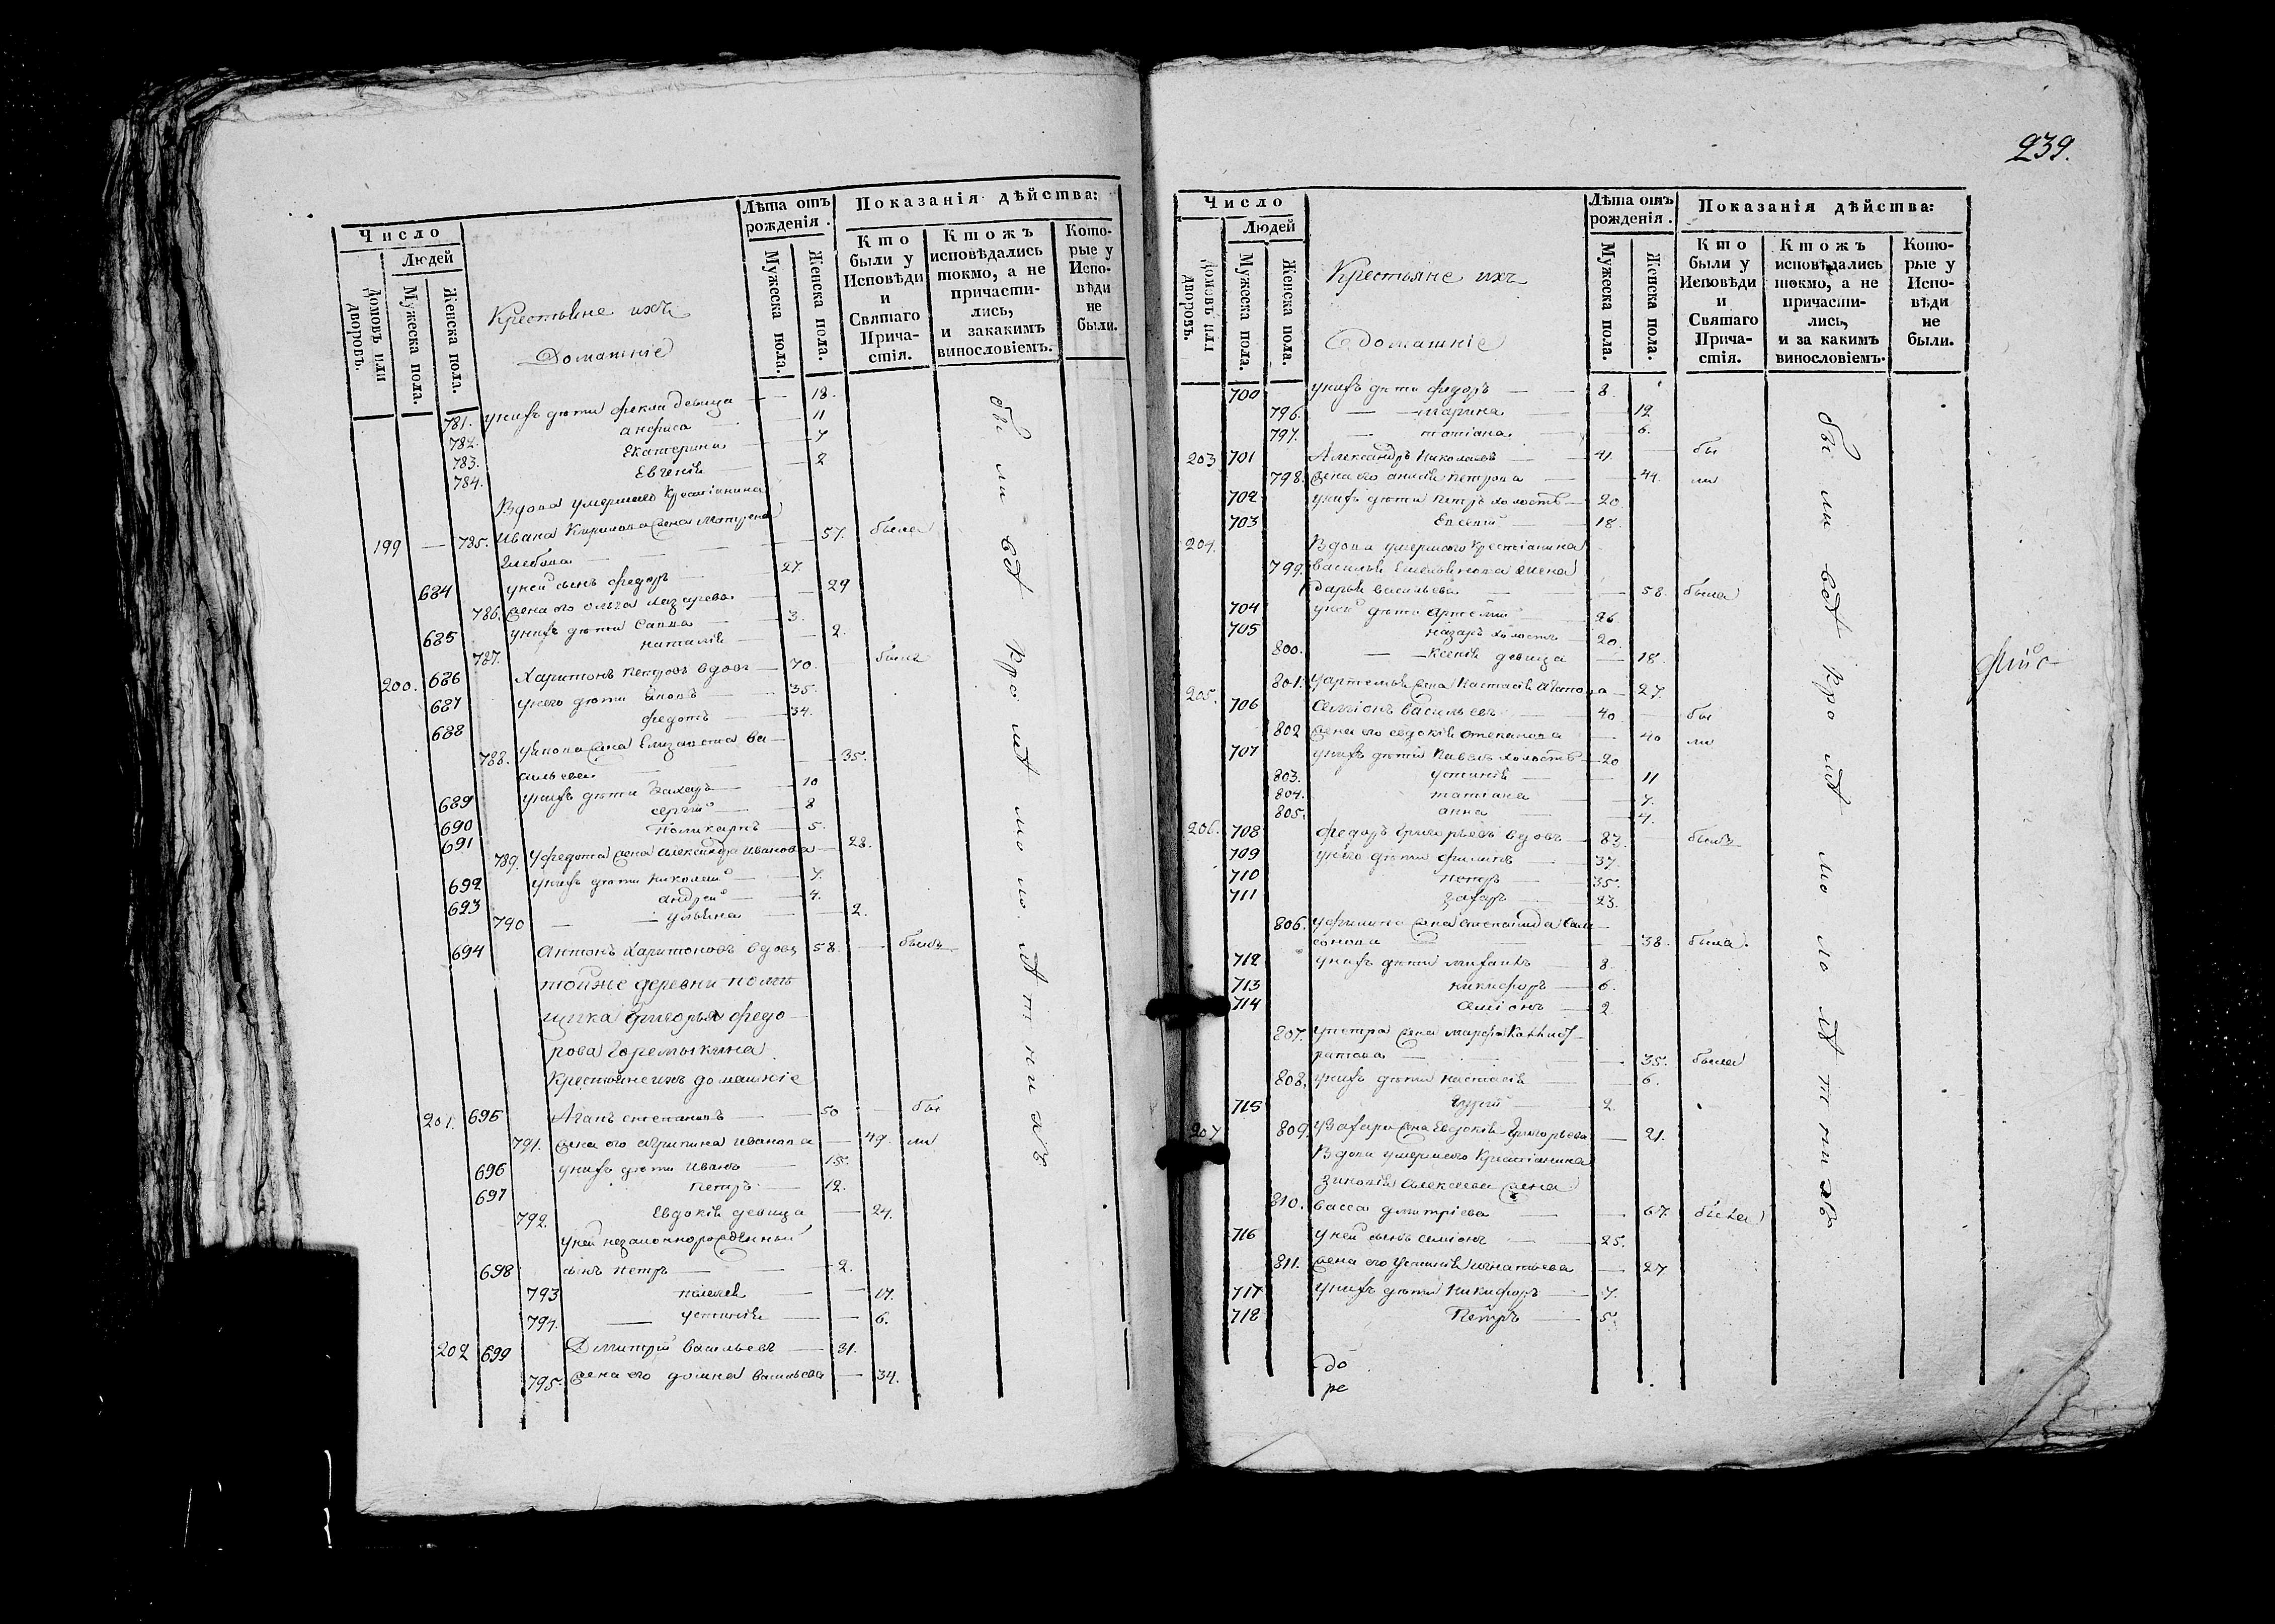 Число
Лѣта отъ рожденія.
Показанія дѣйства:
Домовъ или дворовъ.
Людей
Мужеска пола.
Женска пола.
Крестьяне ихъ
Домашніе
Мужеска пола.
Женска пола.
Кто были у Исповѣди и Святаго Причастія.
Ктожъ исповѣдались токмо, а не причастились, и закакимъ винословіемъ.
Которые у Исповѣди не были.
781. унихъ дѣти Фекла девица 18.
782. анфиса 11
783. Екатерина 7
784. Евгенія 2
Вдова умершего Крестіанина
199 785. Ивана Кирилова жена Матрена
Глебова 57. была
684 уней сынъ Федоръ 27.
786. жена его Ольга Лазарева 29
685 унихъ дѣти Савва 3.
787. наталія 2.
200. 686 Харитонъ Петровъ вдовъ 70. былъ
687 унего дѣти 35.
688 федотъ 34.
788. жена Елизавета Ва-
сильева 35.
689 унихъ дѣти Захаръ 10
690 сергій 8
691 Поликарпъ 5.
789. Уфедота жена александра Иванова 28.
692 унихъ дѣти николай 7.
693 андрей 4.
790 ульяна 2.
694 Антонъ Харитоновъ вдовъ 58. былъ
тойже деревни помѣ
щика Григорья Федо-
рова Горемыкина
Крестьяне ихъ домашніе
201. 695 степановъ 50 бы
791. жена его агрипина Иванова 49. ли
696 унихъ дѣти Иванъ 15.
697 Петръ 12.
792. Евдокія девица 24.
Уней незаконнорожденный
698 сынъ петръ 2.
793 пелагея 17.
794. устинія 6.
202 699 Димитрій Васильевъ 31.
795. жена его домна Васильева 34.
бы ли всѣ кро мѣ мо ло лѣ т ни хъ
239.
Число
Лѣта отъ рожденія.
Показанія дѣйства:
Домовъ или дворовъ.
Людей
Мужеска пола.
Женска пола.
Крестьяне ихъ
домашніе
Мужеска пола.
Женска пола.
Кто были у Исповѣди и Святаго Причастія.
Ктожъ исповѣдались токмо, а не причастились, и за какимъ винословіемъ.
Которые у Исповѣди не были.
700 унихъ дѣти федоръ 8.
796. марина 12
797. татіана 6.
203 701 Александръ Николаевъ 41. бы
798. жена его Петрова 44. ли
702 унихъ дѣти петръ холостъ 20
703 Евсевій 18.
204. Вдова умершего Крестіанина
799. василья Емельянова жена
дарья васильева 58. была
704 уней дѣти Артемій 26
705 назаръ холостъ 20.
800. ксенія девица 18.
801. уартемья жена Настасія Агапова 27.
205. 706 Семіонъ Васильевъ 40 бы
802 жена его евдокія степанова 40 ли
707 унихъ дѣти Павелъ холостъ 20
803. устинія 11
804. татіана 7.
805. анна 4.
206. 708 федоръ Григорьевъ вдовъ 83. былъ
709 унего дѣти филипъ 37.
710 петръ 35.
711 захаръ 23.
806. Уфилипа жена степанида Сам-
сонова 38. была.
712 унихъ дѣти михаилъ 8.
713 никифоръ 6.
714 Семіонъ 2
807. упетра жена марфа
ратова 35. была
808. унихъ дѣти настасія 6.
715 2
207 809. Узахара жена Евдокія Григорьева 21.
Вдова умершего Крестіанина
Зиновія Алексеева жена
810. васса дмитріева 67. была
716 уней сынъ семіонъ 25.
811. жена его Устинія Игнатьева 27
717 унихъ дѣти Никифоръ 7.
718 Петръ 5.
до
ре
бы ли всѣ кро мѣ мо ло лѣ т ни хъ